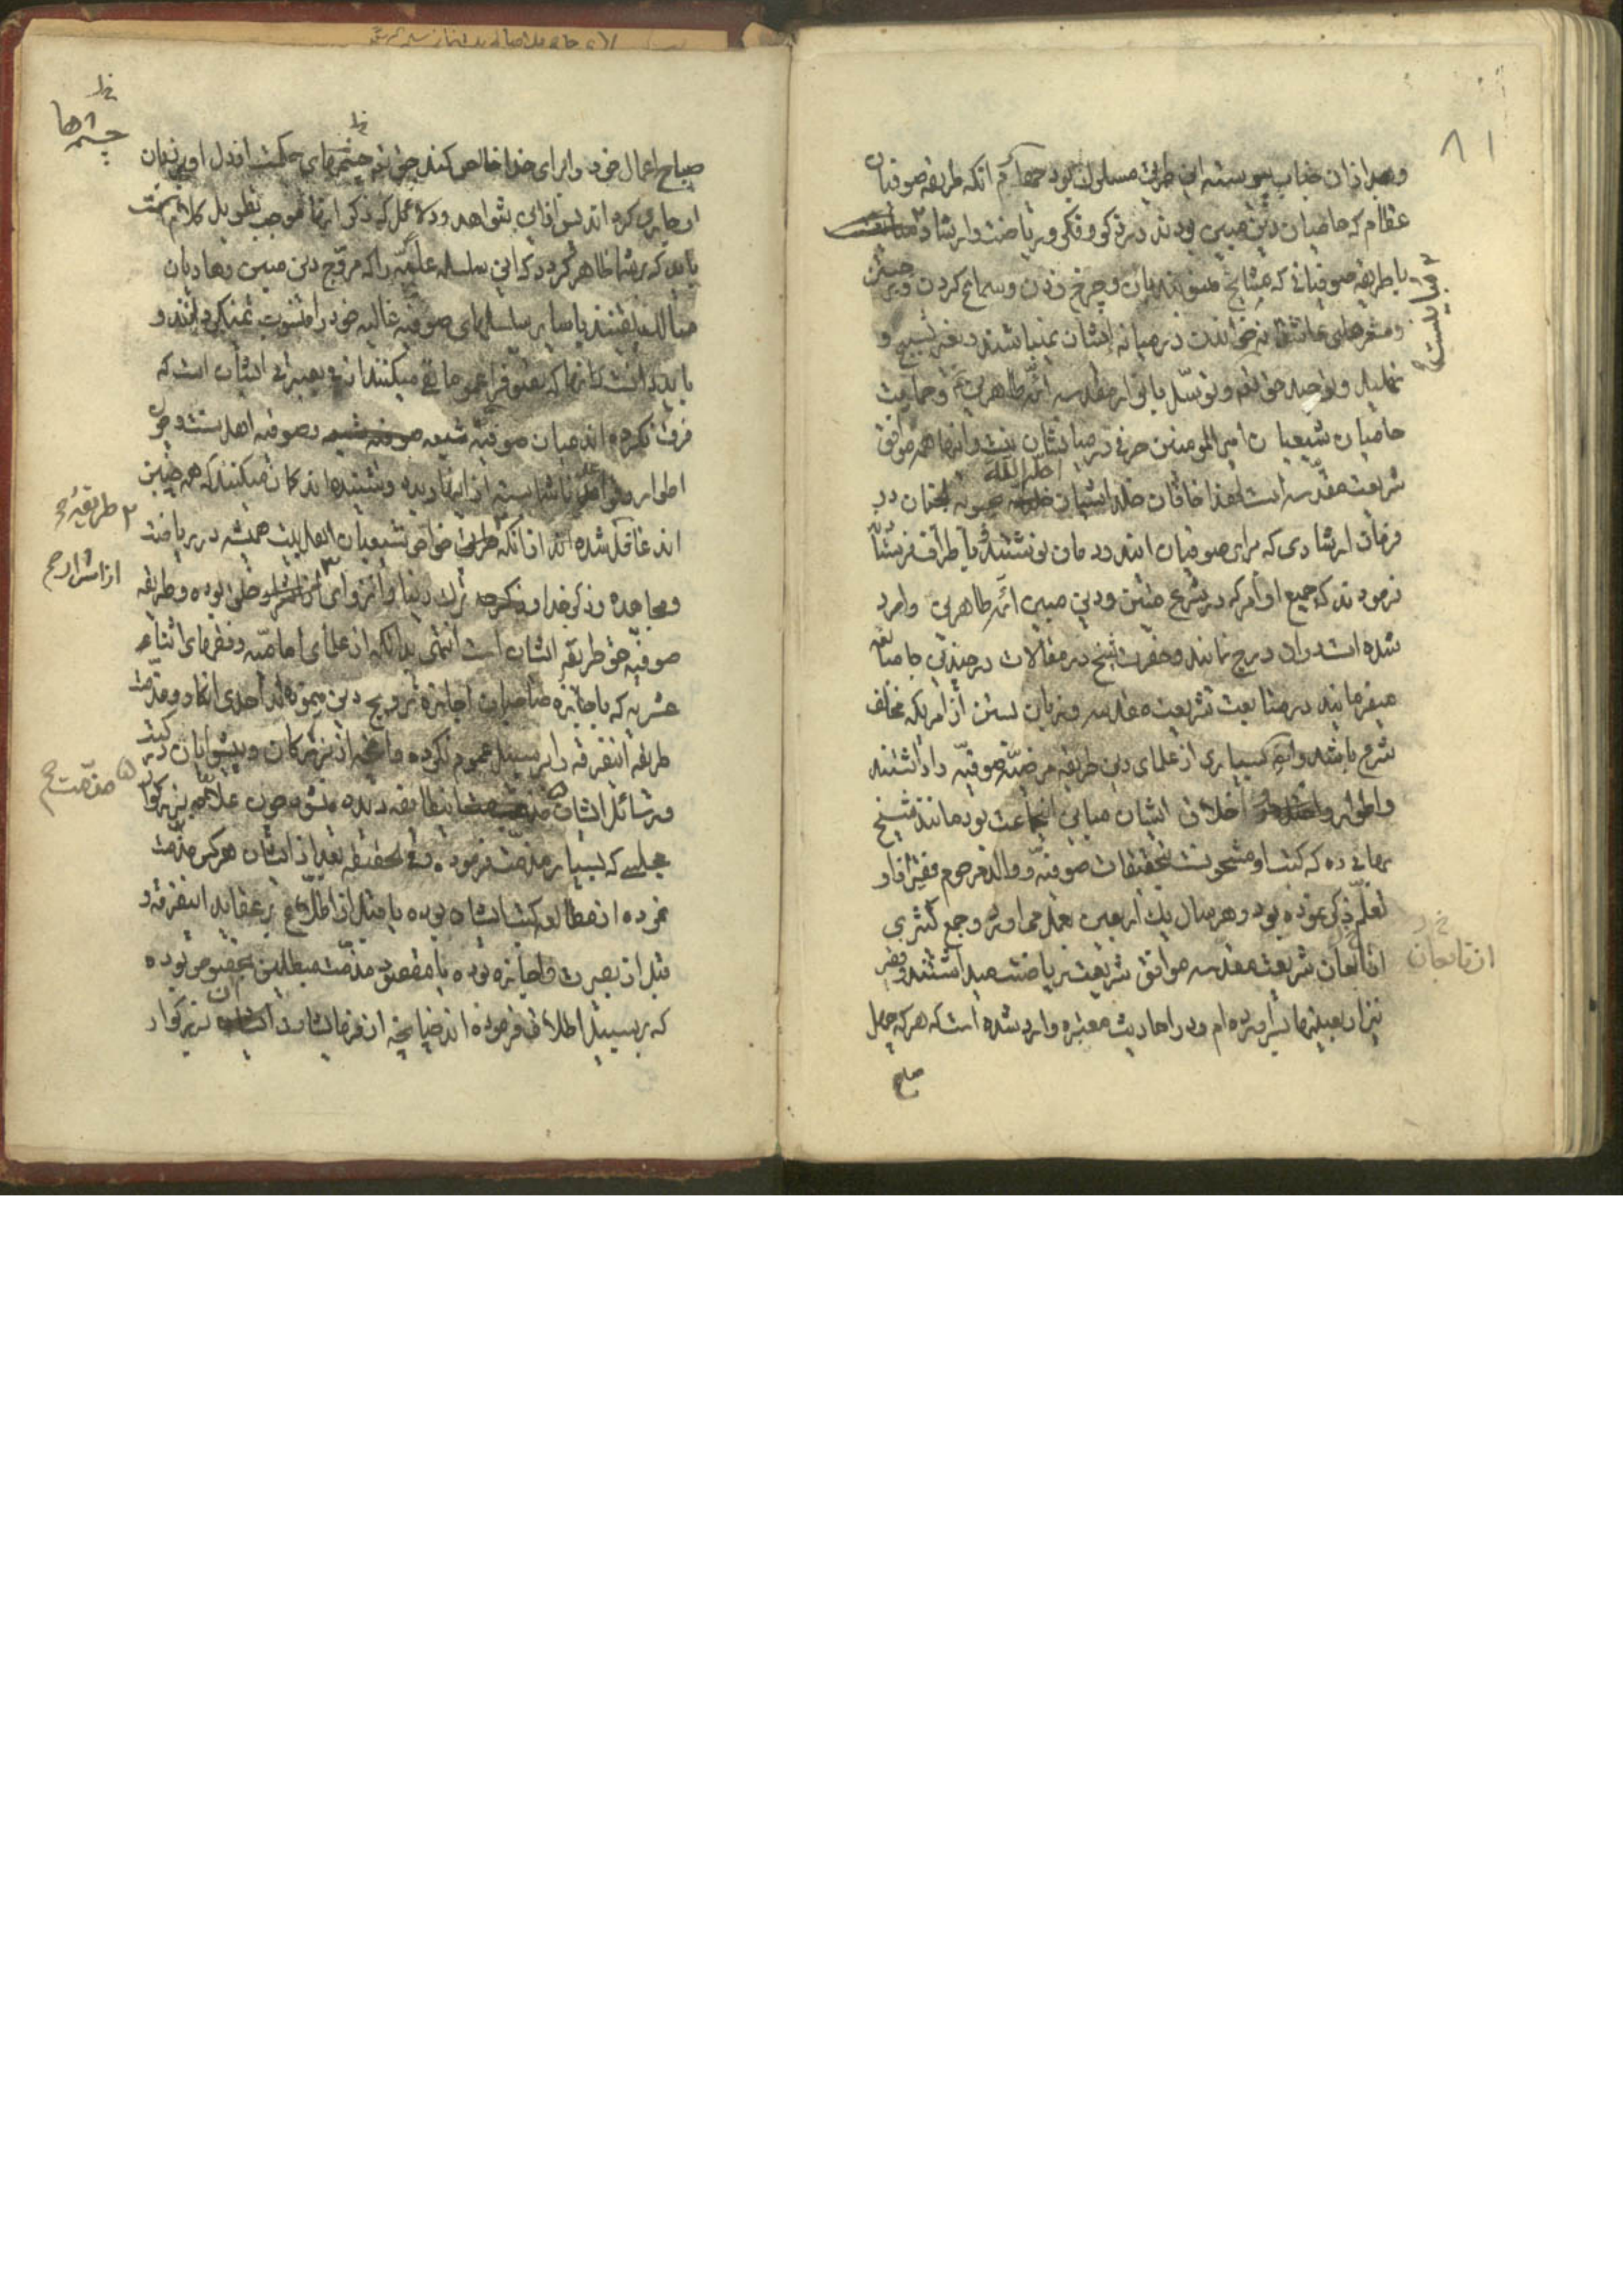 ٨١
و بعد از آن جناب پیوسته این طریق مسلوک بود چهارم آنکه طریقه صوفیان
عظام که حامیان دین مبین بودند در ذکر و فکر و ریاضت و ارشاد
با طریقه صوفیانی که مشایخ منسوبند باین و چرخ زدن و سماع کردن و
و شعرهای عاشقانه خواندن در میانه ایشان نمیباشد و بغیر تسبیح و
تهلیل و توحید حق تعالی و توسل بانوار مقدسه ائمه طاهرین و حمایت
حامیان شیعیان امیر المومنین حرفی در میانشان نیست و اینها همه موافق
شریعت مقدسه است لهذا خاقان خلد آشیان
فرمان ارشادی که برای صوفیان این دودمان نوشتند و باطراف فرستادند
فرمودند که جمیع اوامر که در شرع متین و دین مبین ائمه طاهرین وارد
شده است در آن درج نمایند و حضرت شیخ در مقالات در چندین جا مبالغه
میفرمایند در متابعت شریعت مقدسه و زبان بستن از امریکه مخالف
شرع باشد و ایضا بسیاری از علمای دین طریقه مرضیه صوفیه را داشتند
و اطوار و اخلاق ایشان مباین اینجماعت بود مانند شیخ
بهائی ره که کتب او مشحونست بتحقیقات صوفیه و والد مرحوم فقیر از او
تعلیم ذکر نموده بود و هر سال یک اربعین بعمل می آورد و جمع کثیری
از تابعان شریعت مقدسه موافق شریعت ریاضت میداشتند و فقیر
نیز اربعینها بسر آورده ام و در احادیث معتبره وارد شده است که هر که چهل
صباح
از تابعان
صباح اعمال خود را برای خدا خالص کند حق تعالی چشمهای حکمت از دل او بزبان
او جاری کرده اند پس از این شواهد و دلایل که ذکر آنها موجب تطویل کلامست
باید که بر شما ظاهر گردد که این سلسله علیه را که مروج دین مبین و هادیان
مسالک یقینند با سایر سلسلهای صوفیه غالیه خود را منسوب نمیگردانند و
باید دانست که آنها که تصوف را عموما نفی میکنند از بی بصیرتی ایشان است که
فرق نکرده اند میان صوفیه شیعه و صوفیه اهل سنت و چون
اطوار و عقاید ناشایسته از آنها دیده و شنیده اند گمان میکنند که همه چنین
اند غافل شده اند از آنکه طریق خواص شیعیان اهل بیت همیشه در ریاضت
و مجاهده و ذکر خدا و ترک دنیا و انزوای از اشرار خلق بوده و طریقه
صوفیه حق طریقه ایشان است انتهی بدانکه از علمای امامیه و فقهای اثنا
عشریه که باجازه صاحبان اجازه ترویج دین مینموده اند احدی انکار و مذمت
طریقه اینفرقه را بر سبیل عموم نکرده و آنچه از بزرگان و پیشوایان در کتب
و رسائل ایشان مذمت اینطایفه دیده میشود چون علامه بزرگوار
مجلسی که بسیار مذمت فرموده و فی الحقیقه بعد از ایشان هر کس مذمت
نموده از مطالعه کتب ایشان بوده یا قبل از اطلاع بر عقاید اینفرقه و
قبل از بصیرت و اجازه بوده یا مقصود مذمت مبطلین بخصوص بوده
که بر سبیل اطلاق فرموده اند چنانچه از فرمایشات آن بزرگوار
چشمها
۲ طریقه ح
از اشرار ح
۵ مذمت ح